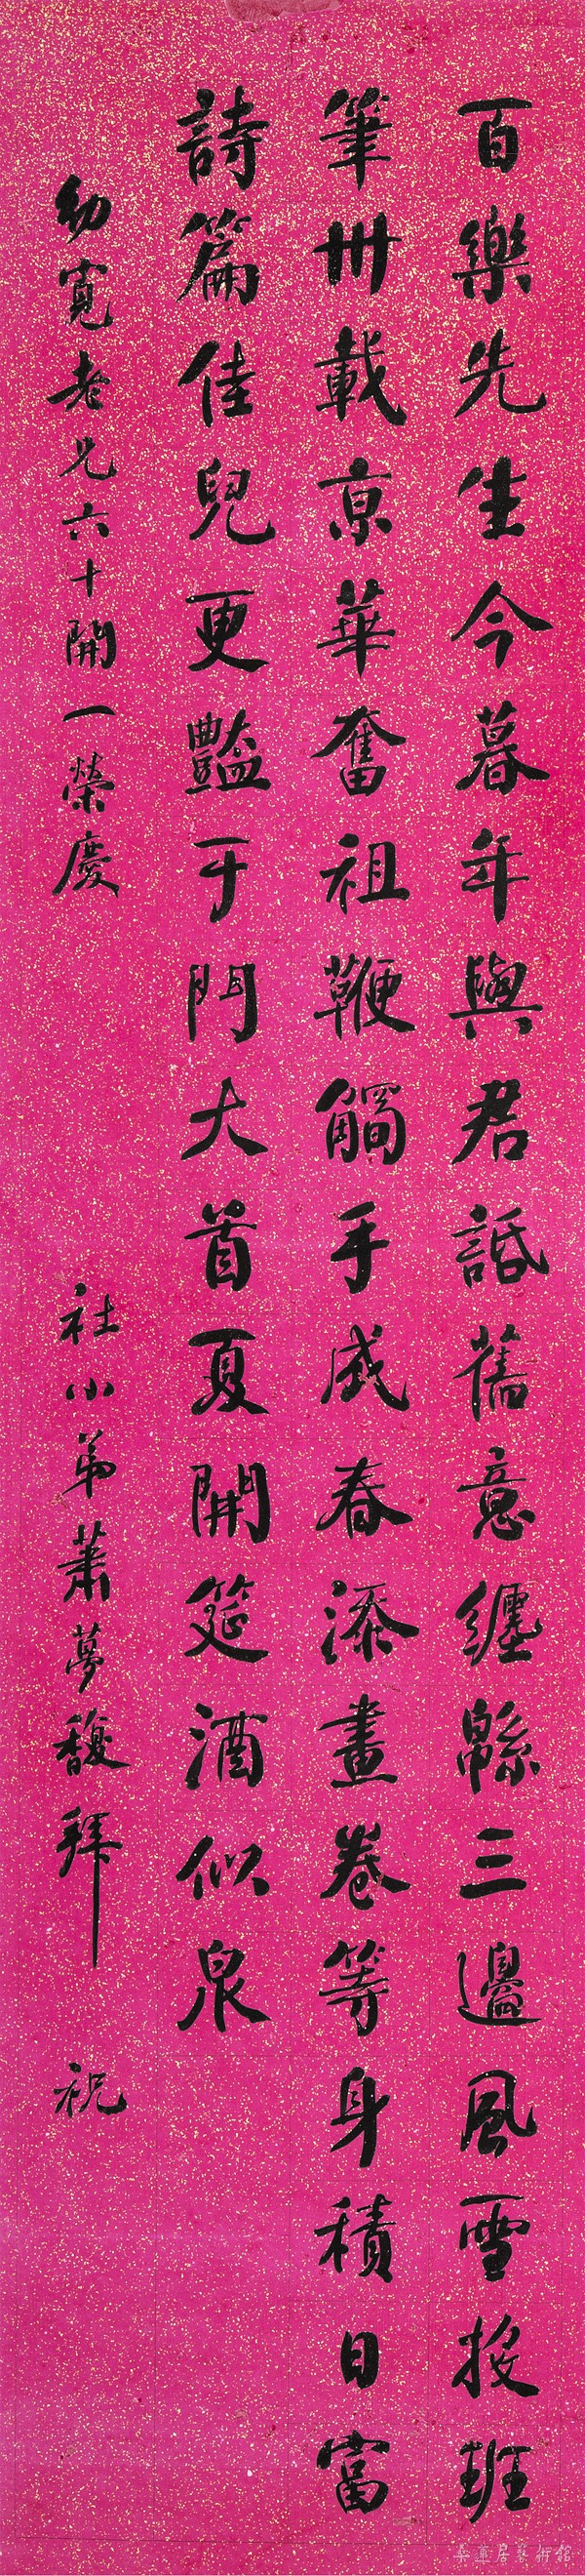 百樂先生今暮年與君話舊意纏緜三邊風雪投班
筆卅載京華奮祖鞭觸手成春添畫卷等身積日富
詩篇佳兒更豔于門大首夏開筵酒似泉
幼寬老兄六十開一榮慶 社小弟蕭夢馥拜 祝